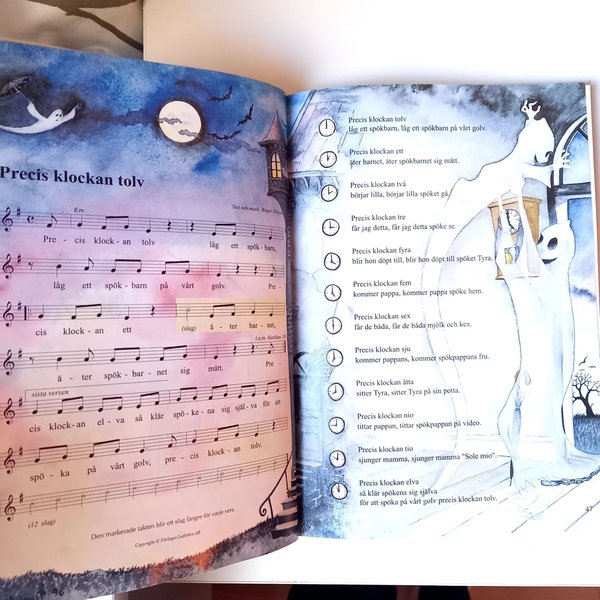 Precis klockan tolv
Text och musik: Birger
Em
Pre - cis klock - an tolv låg ett spök - barn,
låg ett spök - barn på vårt golv. Pre -
cis klock - an ett (slag) ä - ter bar - net,
t.o.m. klockan
ä - ter spök - bar - net sig mätt. Pre -
sista versen
cis klock - an el - va så klär spö - ke - na sig själ - va för att
spö - ka på vårt golv, pre - cis klock - an tolv.
(12 slag)
Den markerade takten blir ett slag längre för varje vers.
Copyright © Förlaget Lutfisken AB
96
Precis klockan tolv
låg ett spökbarn, låg ett spökbarn på vårt golv.
Precis klockan ett
äter barnet, äter spökbarnet sig mätt.
Precis klockan två
börjar lilla, börjar lilla spöket gå.
Precis klockan tre
får jag detta, får jag detta spöke se.
Precis klockan fyra
blir hon döpt till, blir hon döpt till spöket Tyra.
Precis klockan fem
kommer pappa, kommer pappa spöke hem.
Precis klockan sex
får de båda, får de båda mjölk och kex.
Precis klockan sju
kommer pappans, kommer spökpappans fru.
Precis klockan åtta
sitter Tyra, sitter Tyra på sin potta.
Precis klockan nio
tittar pappan, tittar spökpappan på video.
Precis klockan tio
sjunger mamma, sjunger mamma "Sole mio".
Precis klockan elva
så klär spökena sig själva
för att spöka på vårt golv precis klockan tolv.